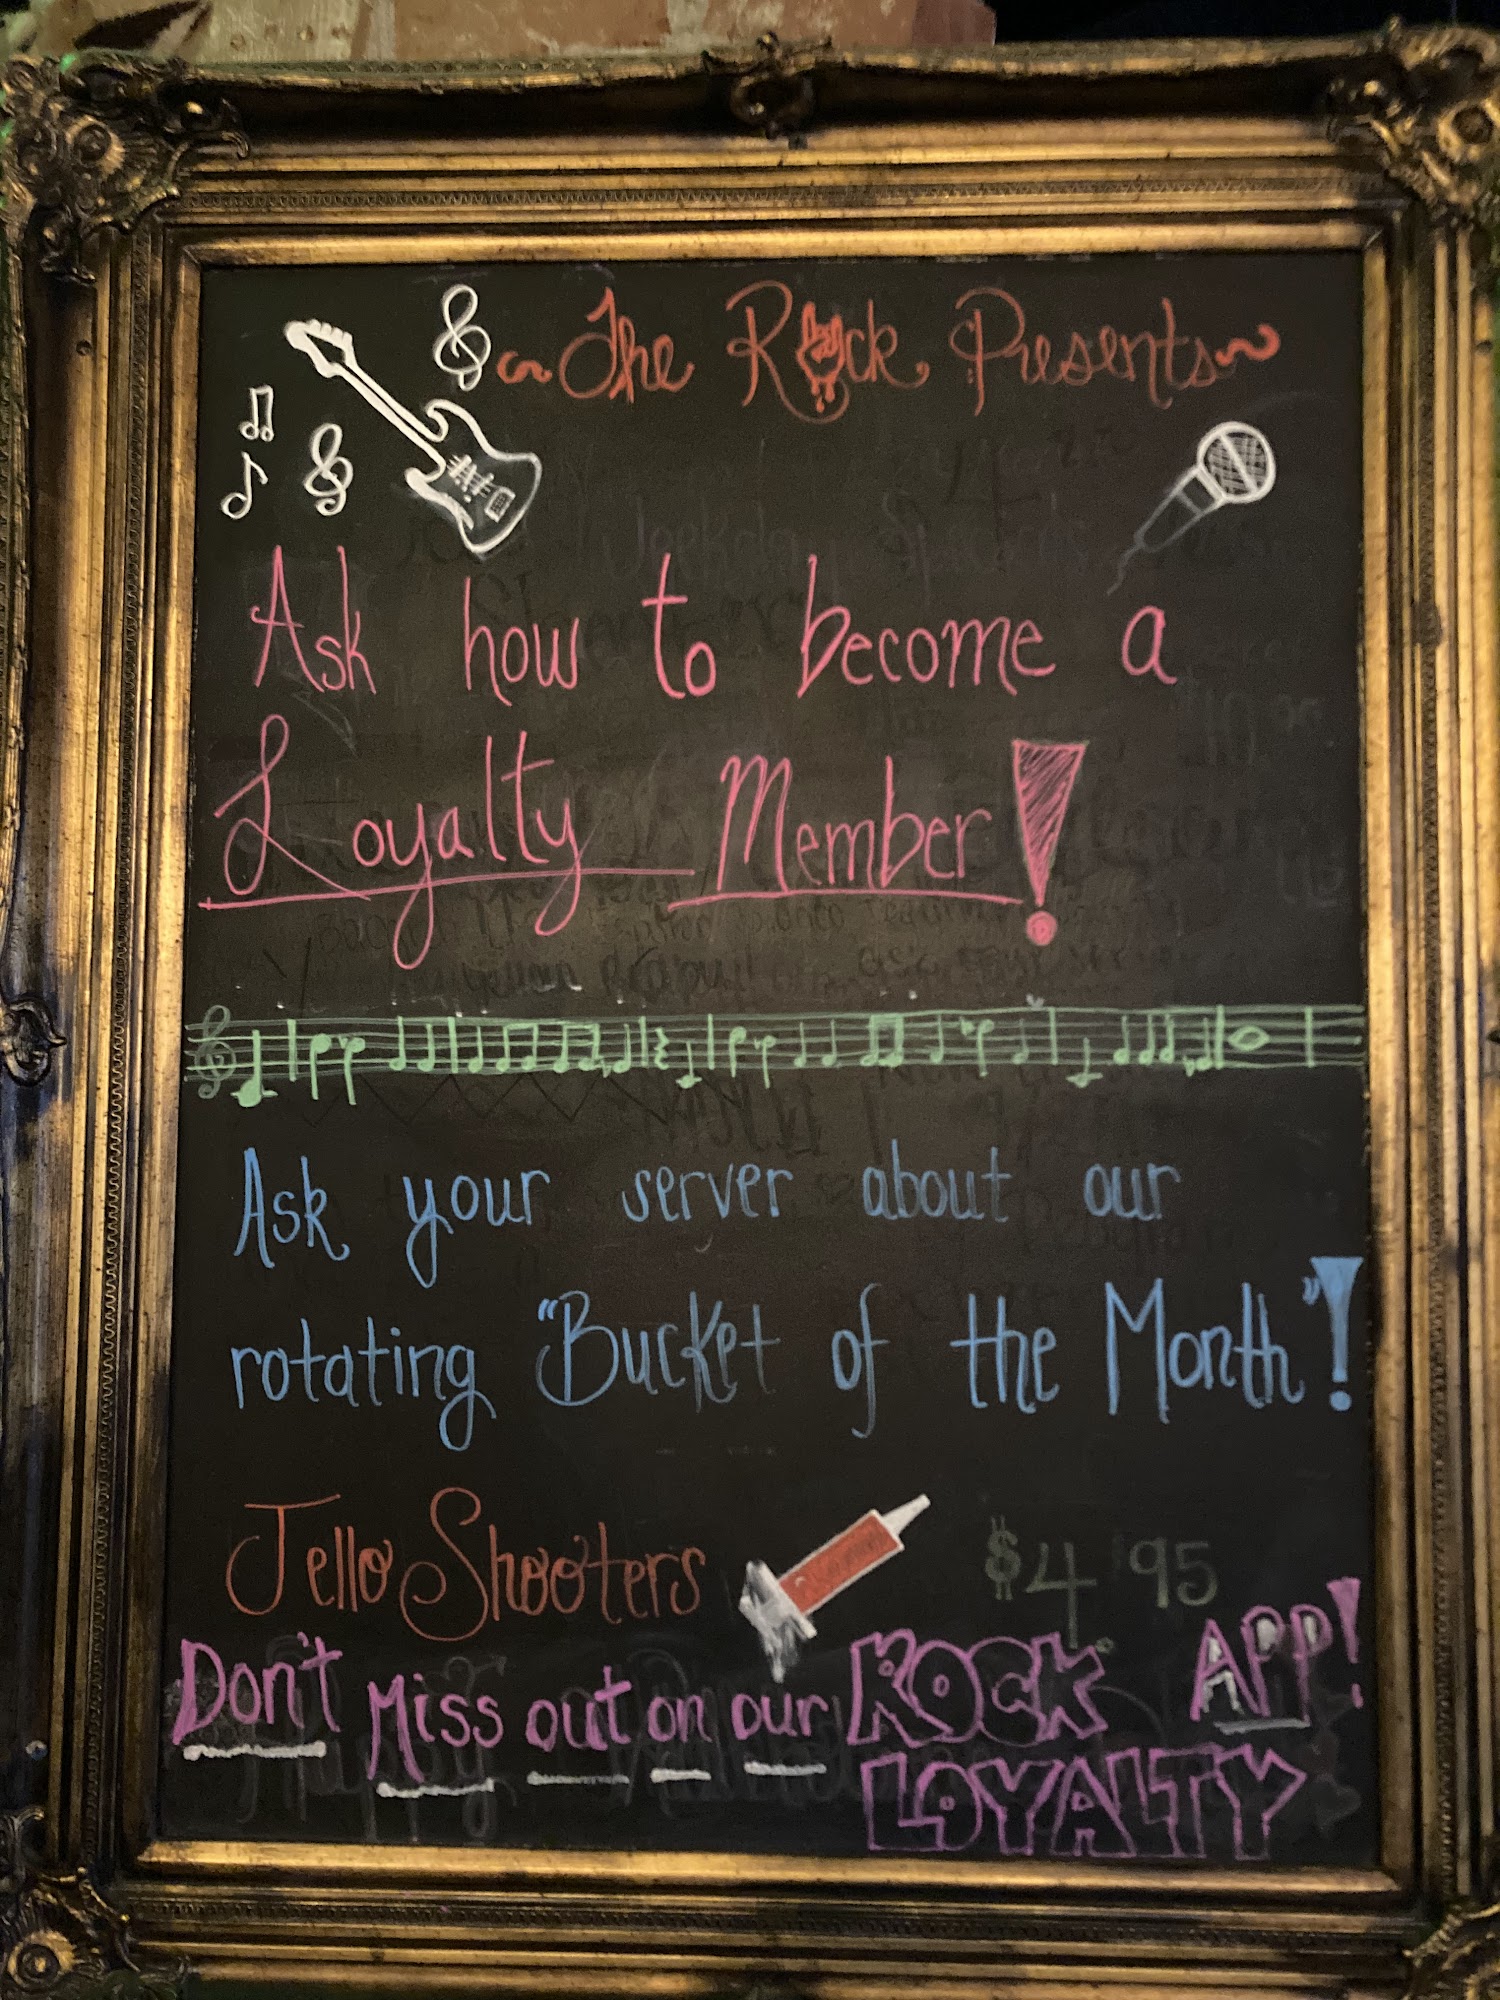 ~The Rock Presents~
Ask how to become a
Loyalty Member!
Ask your server about our
rotating "Bucket of the Month"!
Jello Shooters $4.95
Don't Miss out on our ROCK APP!
LOYALTY